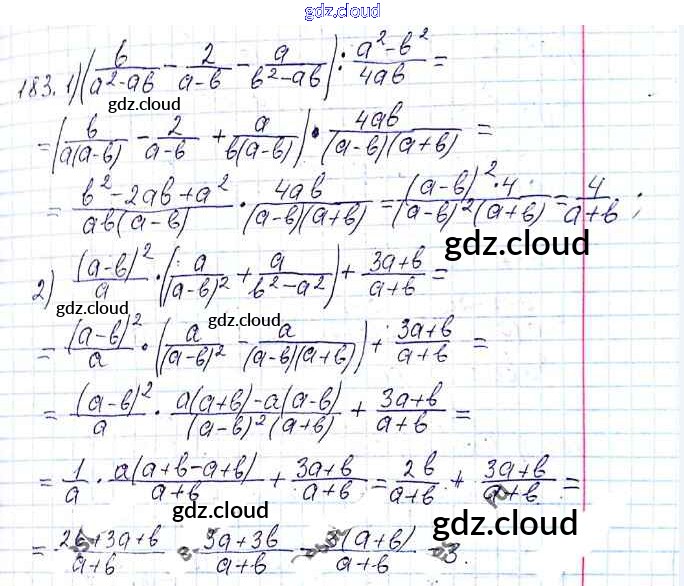 gdz.cloud
183. 1) (b/(a²-ab) - 2/(a-b) - a/(b²-ab)) : (a²-b²)/(4ab) =
gdz.cloud
= (b/(a(a-b)) - 2/(a-b) + a/(b(a-b))) • 4ab/((a-b)(a+b)) =
= (b²-2ab+a²)/(ab(a-b)) • 4ab/((a-b)(a+b)) = ((a-b)²·4)/((a-b)²(a+b)) = 4/(a+b);
gdz.cloud
2) (a-b)²/a • (a/(a-b)² + a/(b²-a²)) + (3a+b)/(a+b) =
gdz.cloud
gdz.cloud
= (a-b)²/a • (a/(a-b)² - a/((a-b)(a+b))) + (3a+b)/(a+b) =
= (a-b)²/a • (a(a+b)-a(a-b))/((a-b)²(a+b)) + (3a+b)/(a+b) =
= 1/a • a(a+b-a+b)/(a+b) + (3a+b)/(a+b) = 2b/(a+b) + (3a+b)/(a+b) =
gdz.cloud
gdz.cloud
= (2b+3a+b)/(a+b) = (3a+3b)/(a+b) = 3(a+b)/(a+b) = 3.